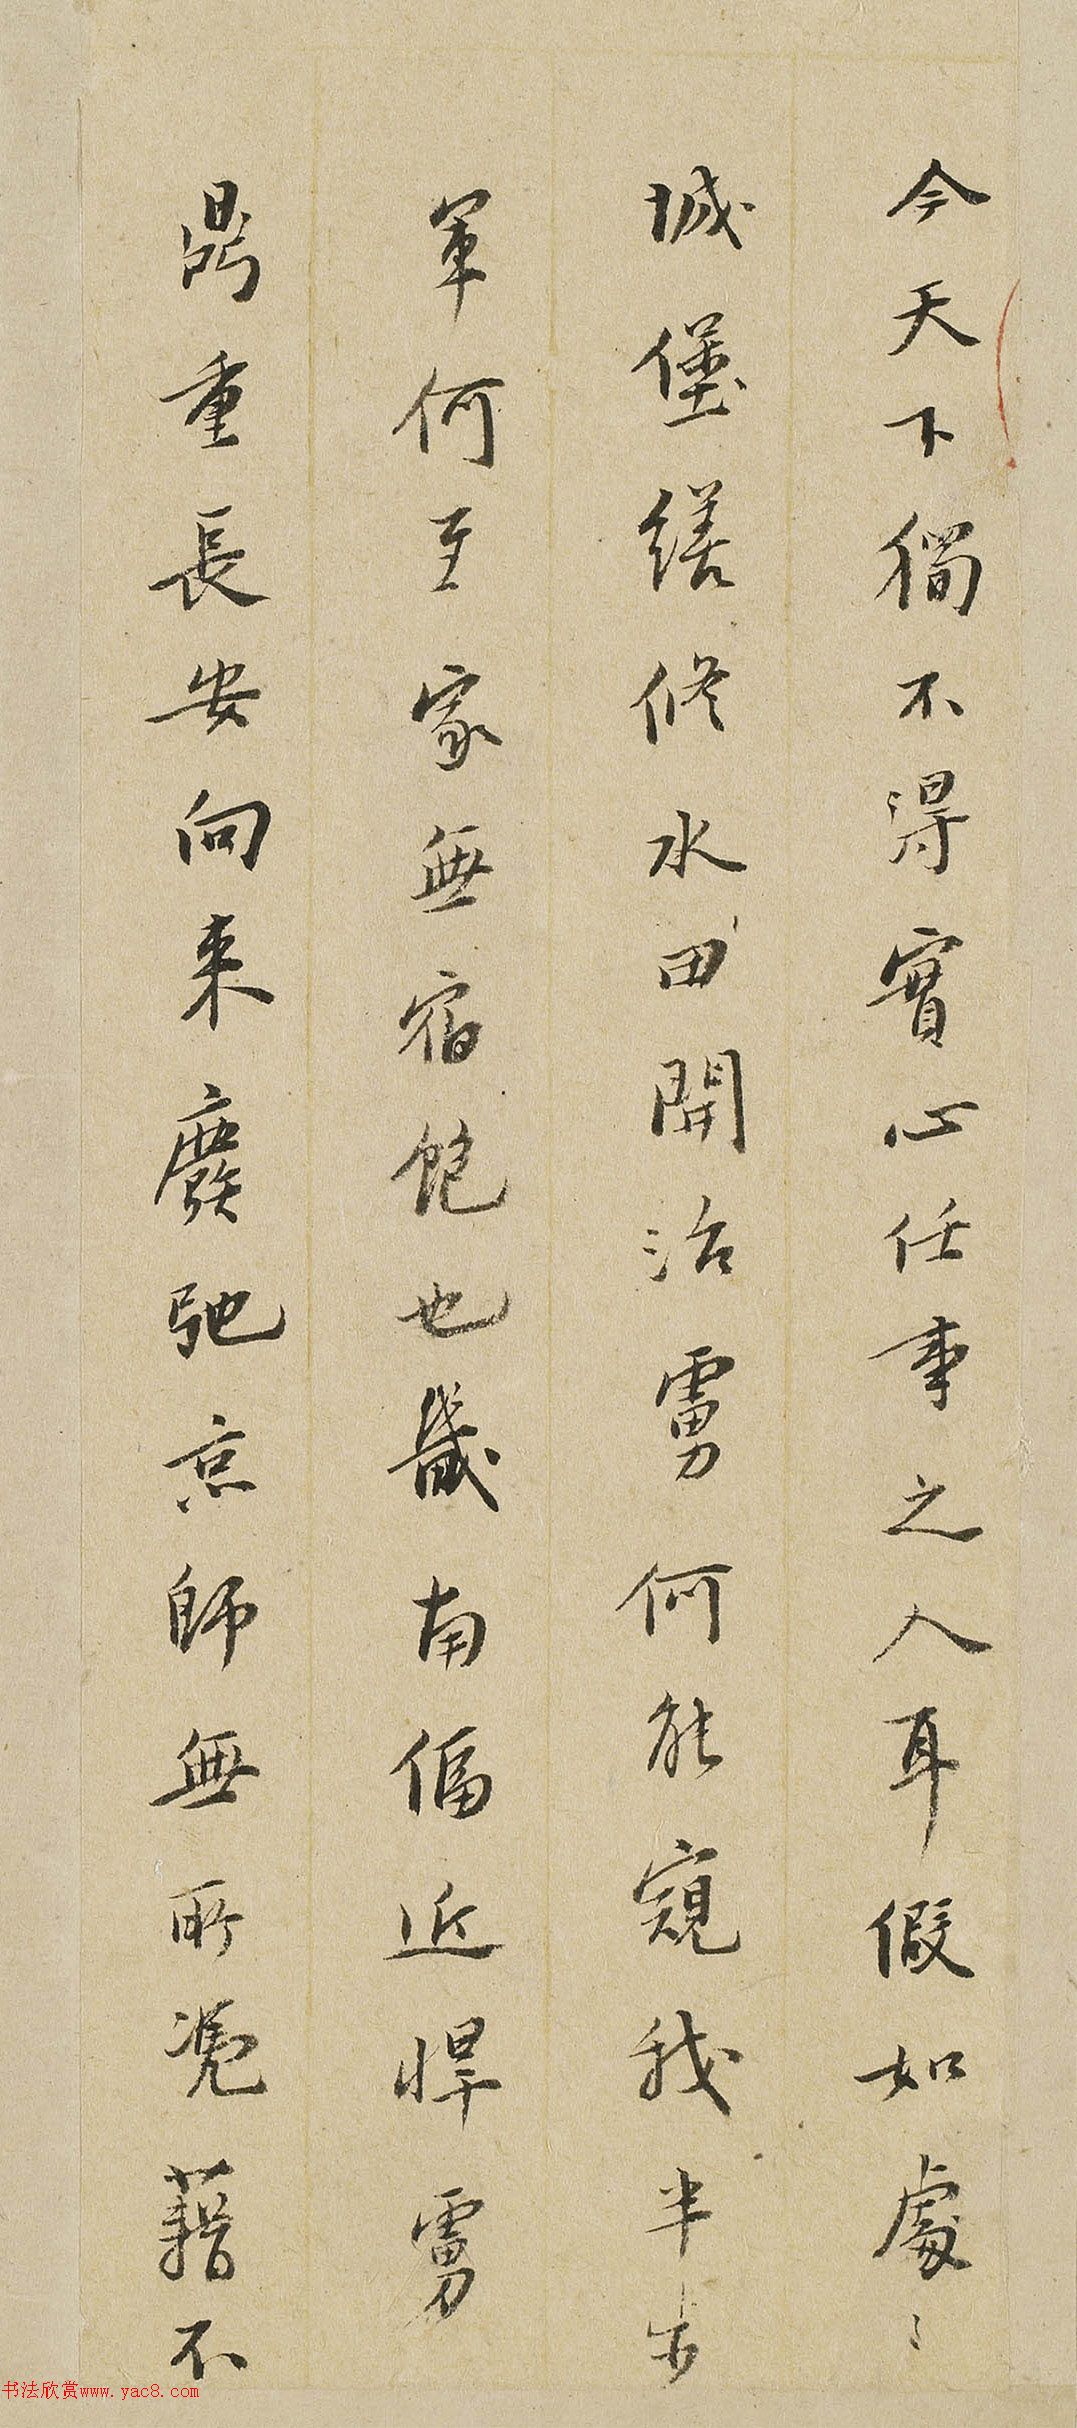 今天下獨不得實心任事之人耳假如處〻
城堡繕修水田開治虜何能窺我半步
軍何至家無宿飽也畿南偪近悍虜
勗重長安向来廢弛京師無所凭藉不
书法欣赏www.yac8.com